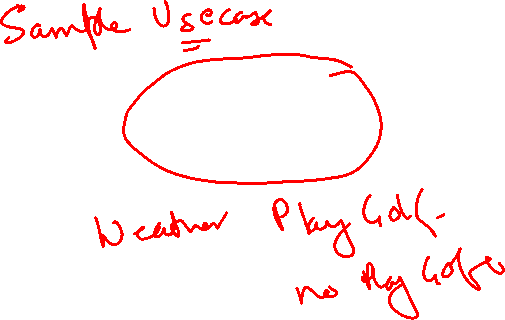 Sample Usecase
Weather Play Golf
no Play Golf